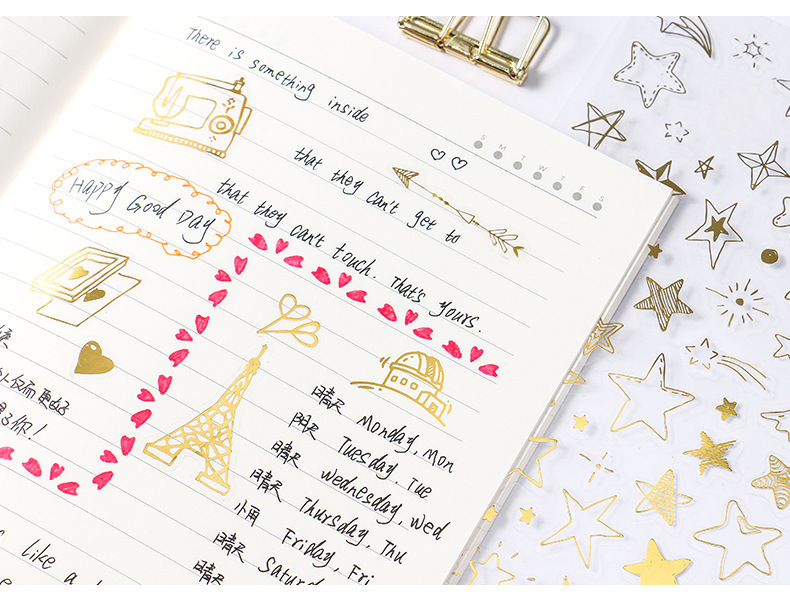 There is something inside
S M T W T F S
that they can't get to
Happy Good Day
that they can't touch. That's yours.
晴天 Monday, Mon
阴天 Tuesday, Tue
晴天 Wednesday, Wed
晴天 Thursday, Thu
小雨 Friday, Fri
晴天 Saturd
晴天
你!
like a